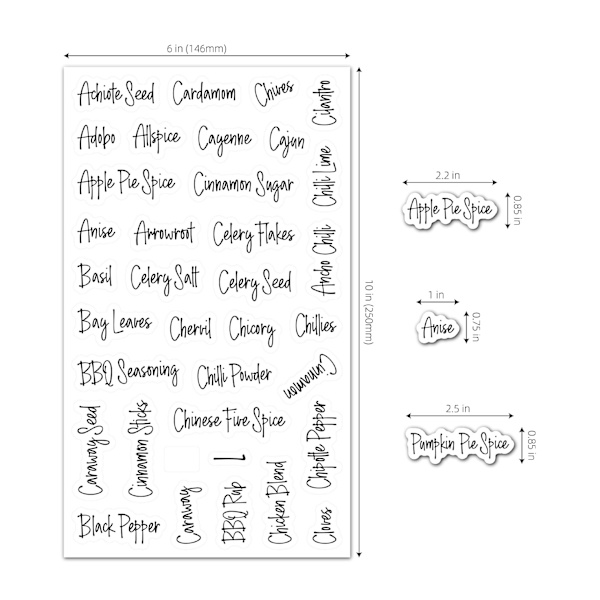 6 in (146mm)
Achiote Seed Cardamom Chives
Cilantro
Adobo Allspice Cayenne Cajun
Chilli Lime
Apple Pie Spice Cinnamon Sugar
Anise Arrowroot Celery Flakes
Ancho Chilli
Basil Celery Salt Celery Seed
Bay Leaves Chervil Chicory Chillies
BBQ Seasoning Chilli Powder
Cinnamon
Caraway Seed
Cinnamon Sticks
Chinese Five Spice
Chipotle Pepper
1
Black Pepper
Caraway
BBQ Rub
Chicken Blend
Cloves
10 in (250mm)
2.2 in
Apple Pie Spice
0.85 in
1 in
Anise
0.75 in
2.5 in
Pumpkin Pie Spice
0.85 in